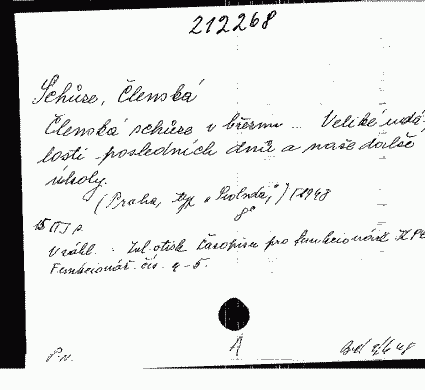 212268
Schůze, Členská
Členská schůze v březnu ... Veliké udá-
losti posledních dnů a naše další
úkoly.
(Praha, typ. „Svoboda,“) [1948
8°
15
V záhl. - Zvl. otisk časopisu pro funkcionáře KSČ
Funkcionář čís. 4-5.